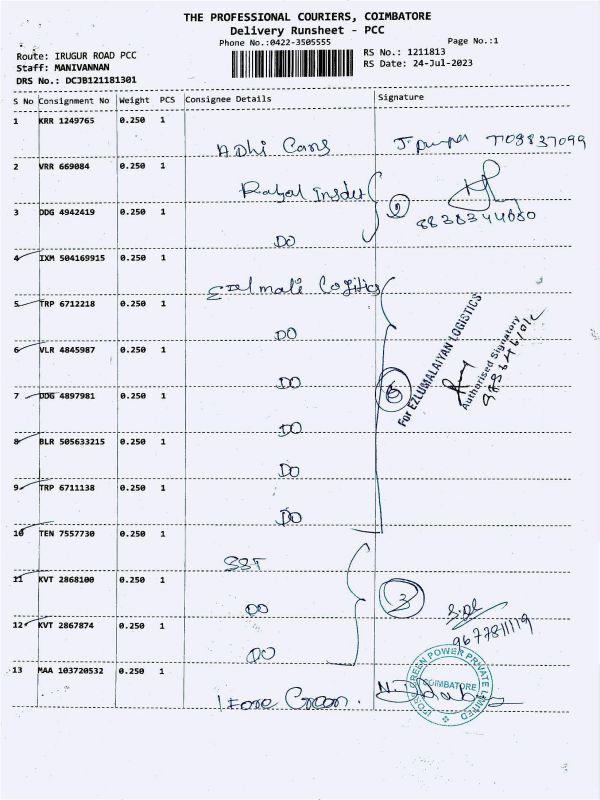 THE PROFESSIONAL COURIERS, COIMBATORE
Delivery Runsheet - PCC
Phone No.:0422-3505555
Page No.:1
Route: IRUGUR ROAD PCC
Staff: MANIVANNAN
DRS No.: DCJB121181301
RS No.: 1211813
RS Date: 24-Jul-2023
S No Consignment No Weight PCS Consignee Details Signature
1 KRR 1249765 0.250 1
ADhi Cars
2 VRR 669084 0.250 1
8838344080
3 DDG 4942419 0.250 1
DO
4 IXM 504169915 0.250 1
5 TRP 6712218 0.250 1
DO
6 VLR 4845987 0.250 1
DO
7 DDG 4897981 0.250 1
DO
6
For EZLUMALAIYAN LOGISTICS
Authorised Signatory
8 BLR 505633215 0.250 1
DO
9 TRP 6711138 0.250 1
DO
10 TEN 7557730 0.250 1
SST
11 KVT 2868100 0.250 1
DO
3
12 KVT 2867874 0.250 1
DO
9677811119
13 MAA 103720532 0.250 1
GREEN POWER PRIVATE LIMITED
COIMBATORE